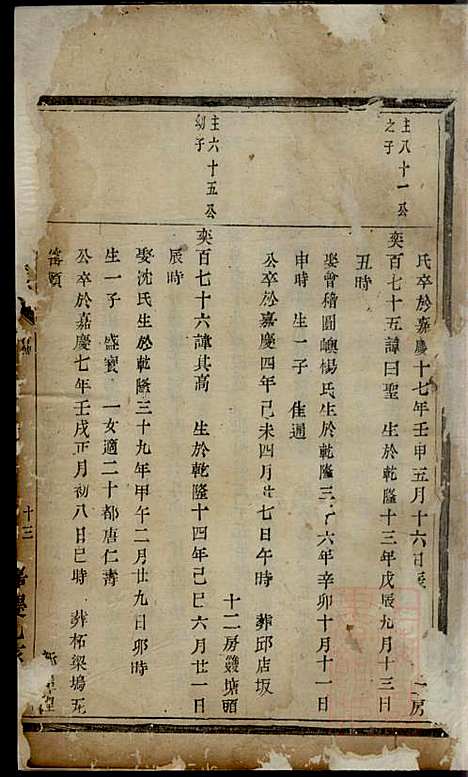 氏卒於嘉慶十七年壬申五月十六日辰
房
主八十一公之子
奕百七十五諱曰聖 生於乾隆十三年戊辰九月十三日
丑時
娶曾稽圓嶼楊氏生於乾隆三十六年辛卯十月十一日
申時 生一子 佳通
公卒於嘉慶四年己未四月廿七日午時 葬邱店坂
十二房雞塘頭
主六十五公幼子
奕百七十六諱其高 生於乾隆十四年己巳六月廿一日
辰時
娶沈氏生於乾隆三十九年甲午二月廿九日卯時
生一子 盛寶 一女適二十都唐仁青
公卒於嘉慶七年壬戌正月初八日巳時 葬柘梁塢
十三